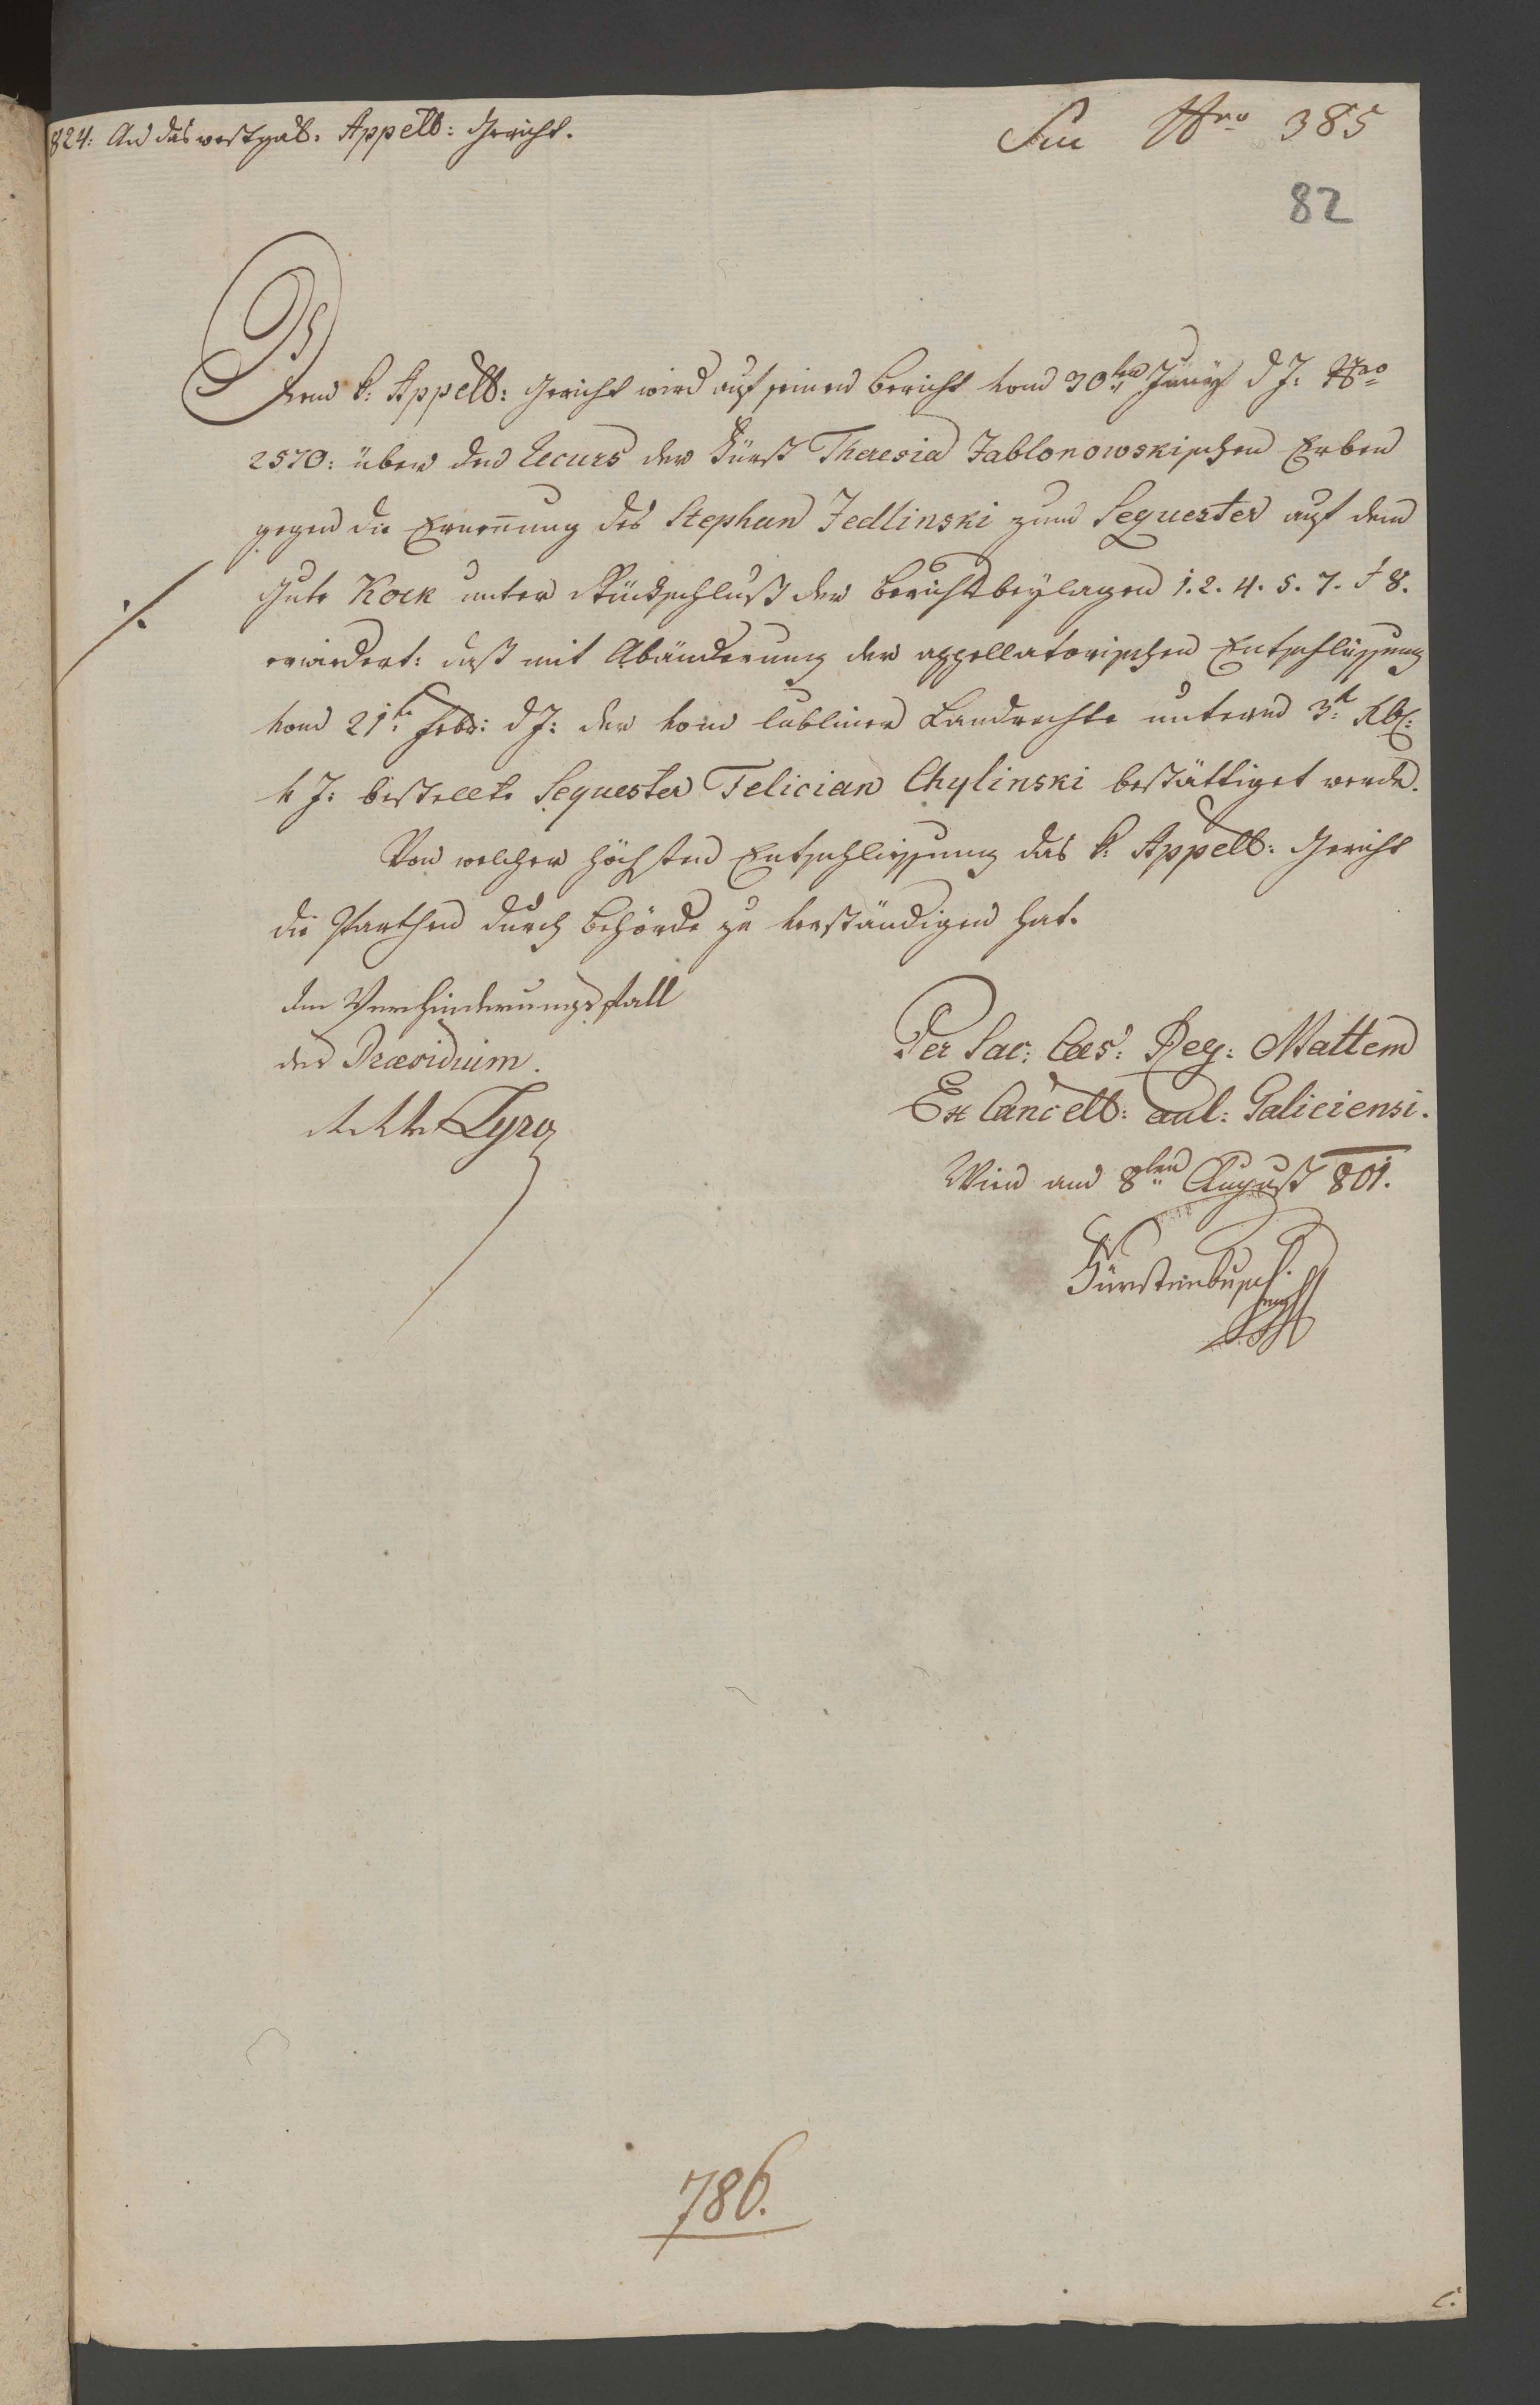 824: An das westgal: Appell: Gericht.
Sm Nro 385
82
Dem k: Appell: Gericht wird auf seinen Bericht vom 30ten Juny d J: Nro
2570: über den Recurs der Fürst Theresia Jablonowskischen Erben
gegen die Ernennung des Stephan Jedlinski zum Sequester auf dem
./. Gute Kock unter Rückschluß der Berichtsbeylagen 1. 2. 4. 5. 7. & 8.
erwiedert: daß mit Abänderung der appellatorischen Entschlüssung
vom 21te Febr: d J: der vom lubliner Landrechte unterm 3t
v J: bestellte Sequester Felician Chylinski bestättiget werde.
Von welcher höchsten Entschliessung das k: Appell: Gericht
die Parthen durch Behörde zu verständigen hat.
Im Verhinderungsfall
des Præsidium.
Lyro
Per Sac: Caes: Reg: Mattem
Ex Cancell: aul: Galiciensi.
Wien am 8ten August 801.
Fürstenbusch
786.
C.